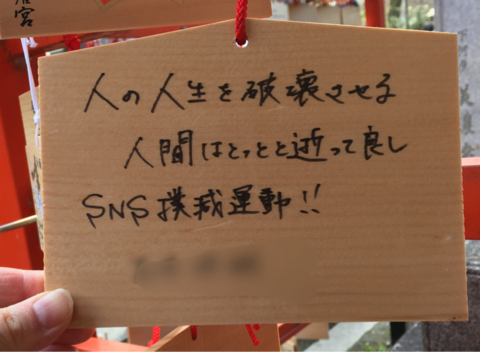 人の人生を破壊させる
人間はとっとと逝って良し
SNS撲滅運動!!